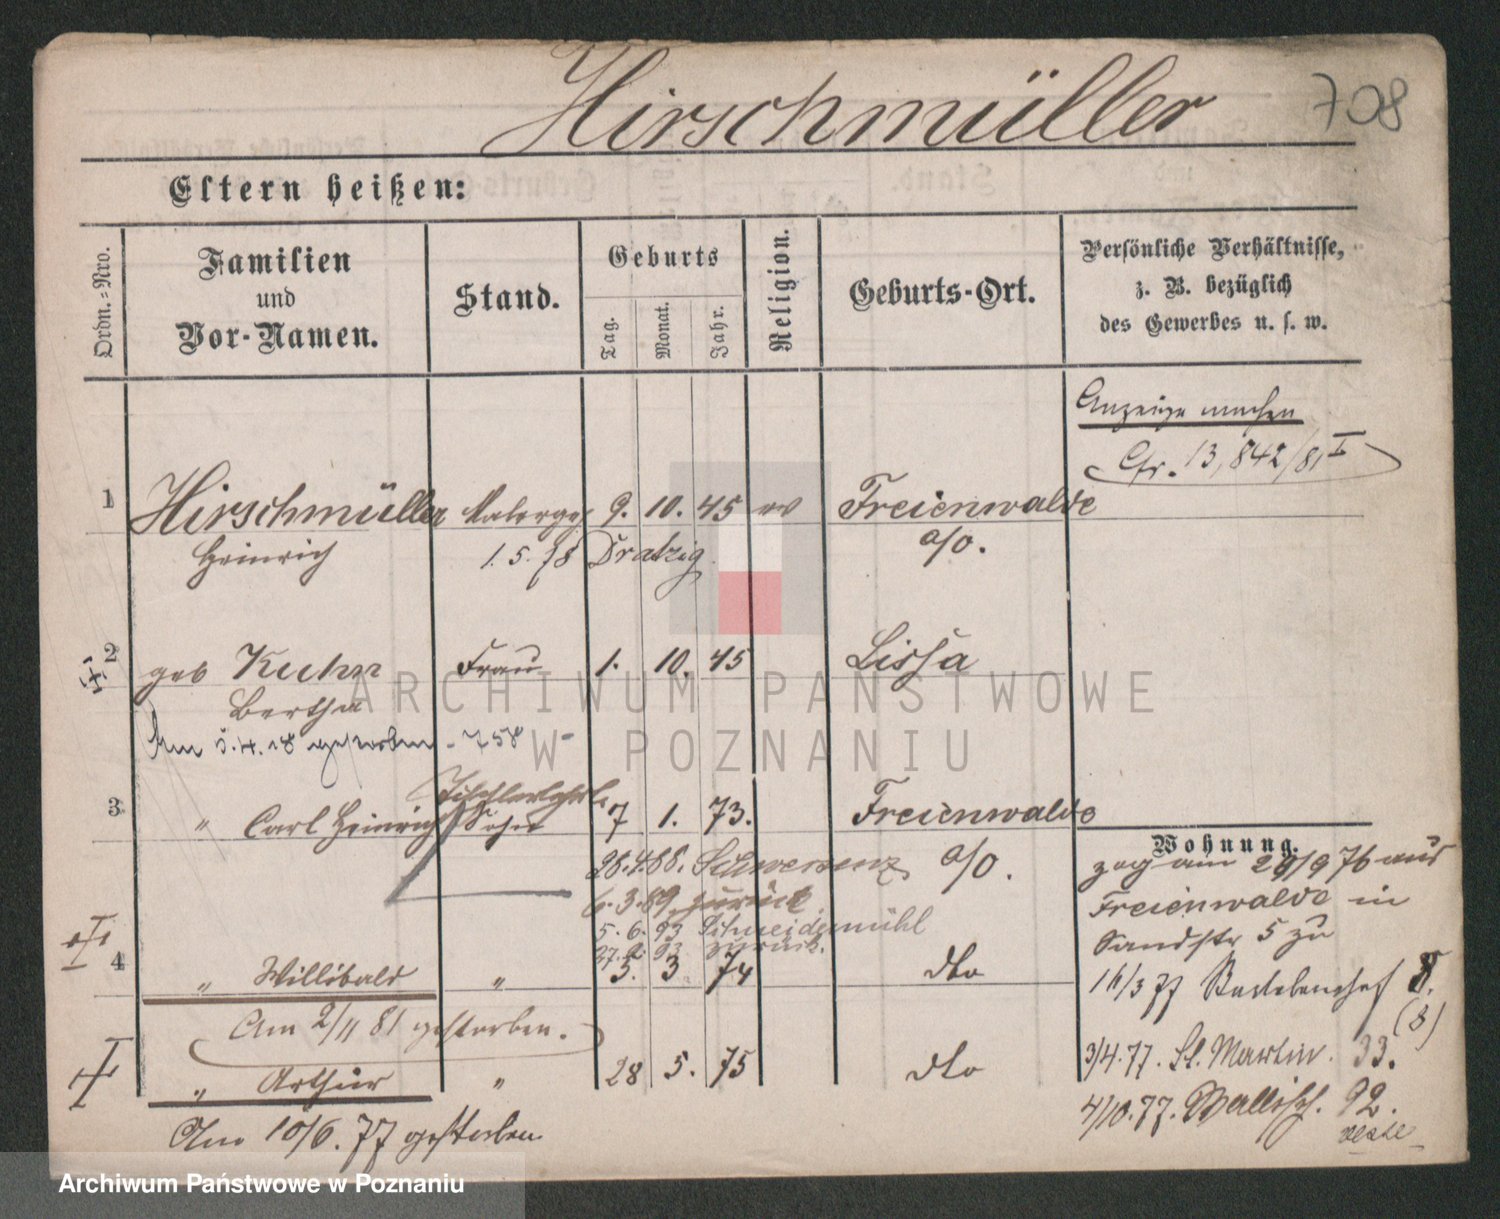 Hirschmüller 708
Eltern heißen:
Ordn.-Nro.
Familien
und
Vor-Namen.
Stand.
Geburts
Tag.
Monat.
Jahr.
Religion.
Geburts-Ort.
Persönliche Verhältnisse,
z. B. bezüglich
des Gewerbes u. s. w.
Anzeige machen
Cfr. 13,842/81 I
1 Hirschmüller Malergeh 9. 10. 45 ev Freienwalde
Heinrich 1. 5. 78 Dratzig a/O.
2 geb Kuhn Frau 1. 10. 45 Lissa
Bertha
Am 5.4.18 gestorben - 758 -
Tischlerlehrl.
3 " Carl Heinrich Sohn 7 1. 73. Freienwalde
28.4.88. Schwersenz a/O.
6.3.89. zurück
5. 6. 93 Schneidemühl
93 zurück.
4 " Willibald " 5. 3 74 dto
Am 2/11 81 gestorben.
" Arthur " 28 5. 75 dto
Am 10/6. 77 gestorben
Wohnung.
zog am 29/9 76 aus
Freienwalde in
Sandstr 5 zu
16/3 77
(8)
3/4.77. St. Martin. 33.
4/10.77. Wallisch. 92.
ARCHIWUM PAŃSTWOWE
W POZNANIU
Archiwum Państwowe w Poznaniu